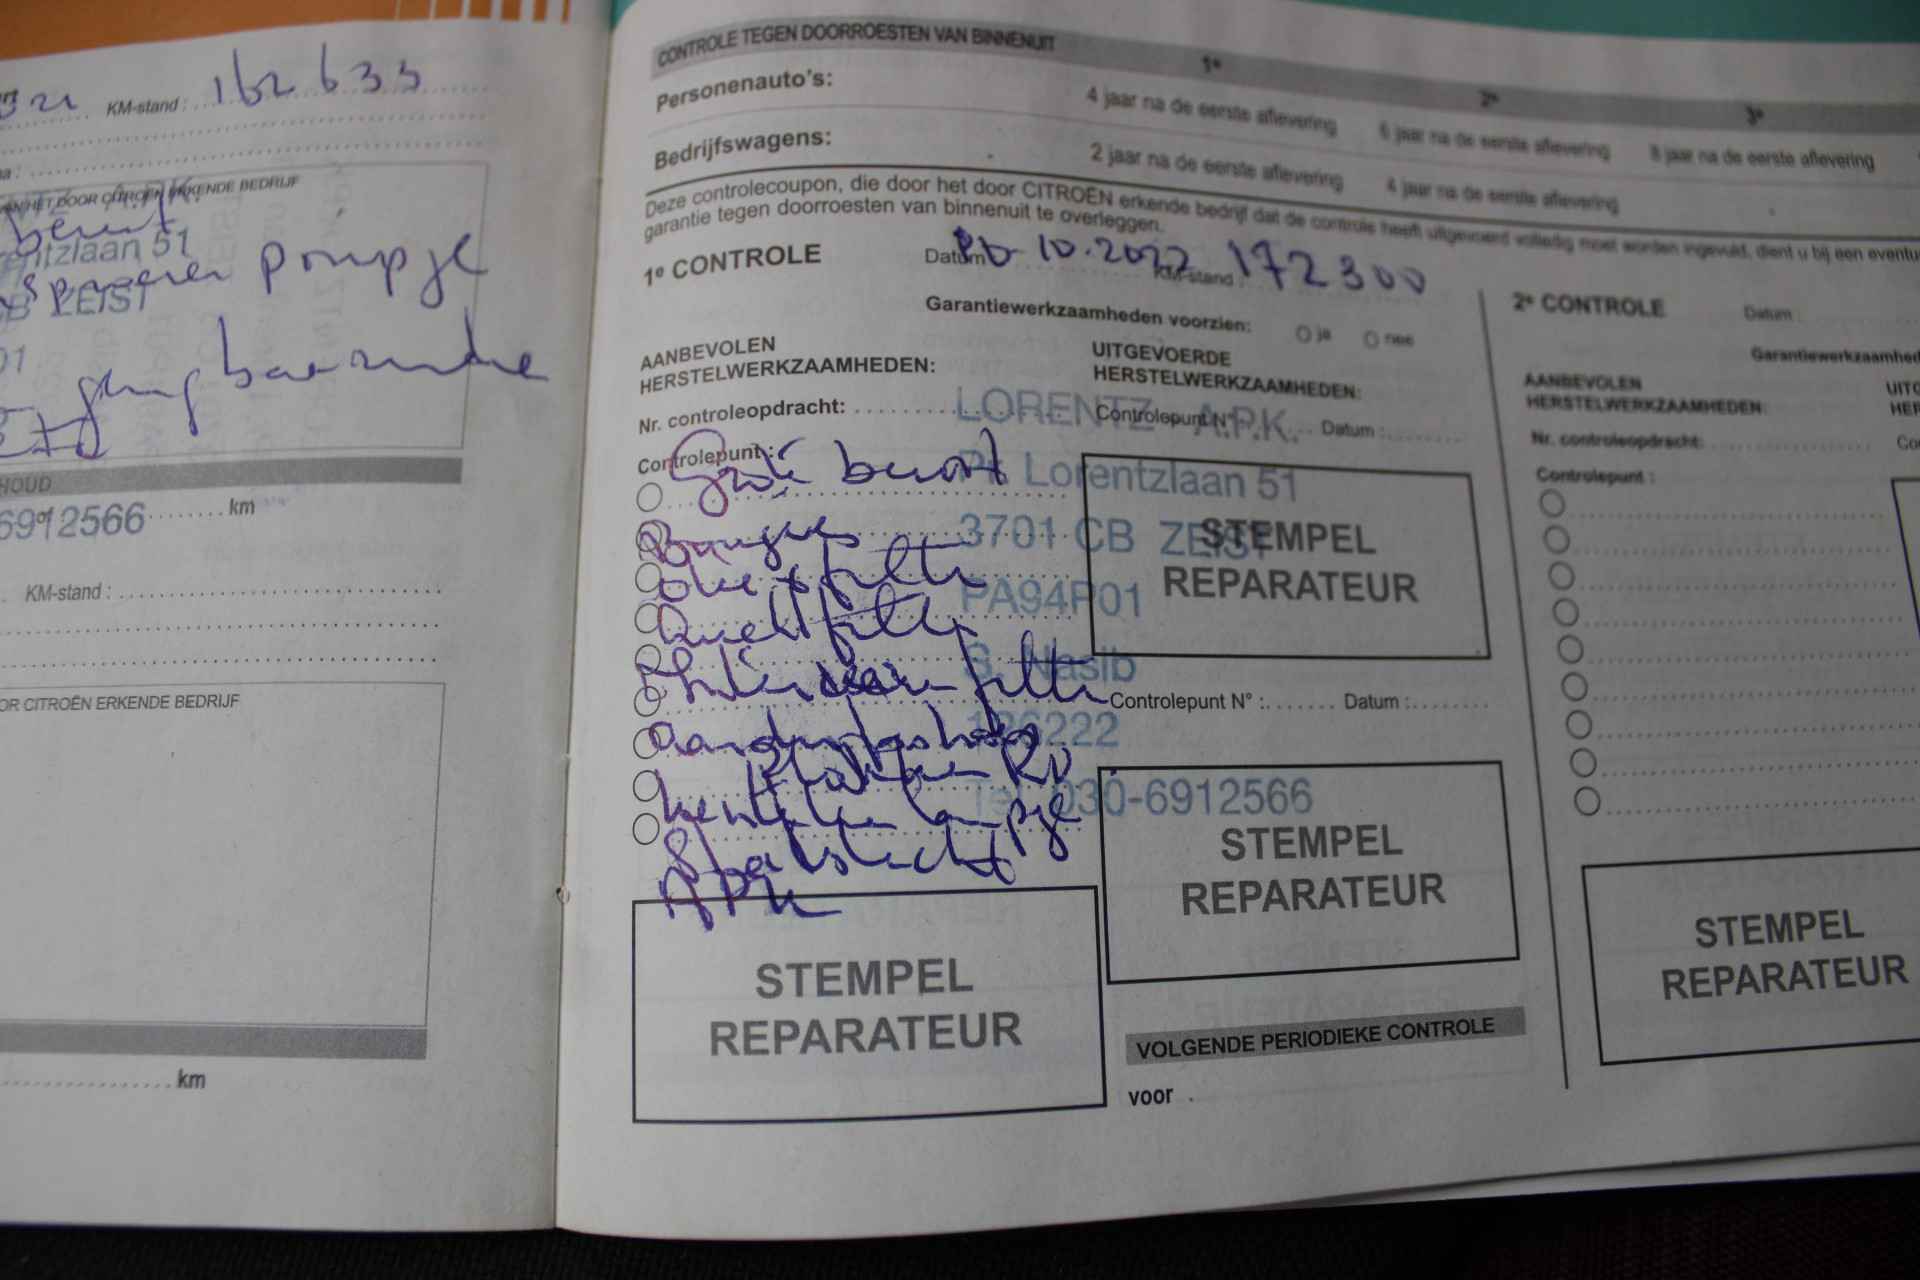 21 KM-stand : 162 633
AN HET DOOR CITROËN ERKENDE BEDRIJF
beurt
entzlaan 51
pompje
CB ZEIST
01
HOUD
6912566 km
KM-stand :
OR CITROËN ERKENDE BEDRIJF
km
CONTROLE TEGEN DOORROESTEN VAN BINNENUIT
1e 2e 3e
Personenauto's: 4 jaar na de eerste aflevering 6 jaar na de eerste aflevering 8 jaar na de eerste aflevering
Bedrijfswagens: 2 jaar na de eerste aflevering 4 jaar na de eerste aflevering
Deze controlecoupon, die door het door CITROËN erkende bedrijf dat de controle heeft uitgevoerd volledig moet worden ingevuld, dient u bij een eventu
garantie tegen doorroesten van binnenuit te overleggen.
1e CONTROLE Datum 10.2022 KM-stand 172300
Garantiewerkzaamheden voorzien: ja nee
AANBEVOLEN
HERSTELWERKZAAMHEDEN:
UITGEVOERDE
HERSTELWERKZAAMHEDEN:
Nr. controleopdracht:
Controlepunt N° Datum :
LORENTZ A.P.K.
Pr. Lorentzlaan 51
3701 CB ZEIST
PA94P01
S. Nasib
186222
Tel. 030-6912566
Controlepunt :
Grote beurt
Bougies
olie + filter
luchtfilter
interieurfilter
kenteken lampje
Stadslicht
APK
STEMPEL
REPARATEUR
STEMPEL
REPARATEUR
Controlepunt N° : Datum :
STEMPEL
REPARATEUR
VOLGENDE PERIODIEKE CONTROLE
voor
2e CONTROLE Datum :
Garantiewerkzaamhed
AANBEVOLEN
HERSTELWERKZAAMHEDEN:
UITG
HER
Nr. controleopdracht: Co
Controlepunt :
STEMPEL
REPARATEUR